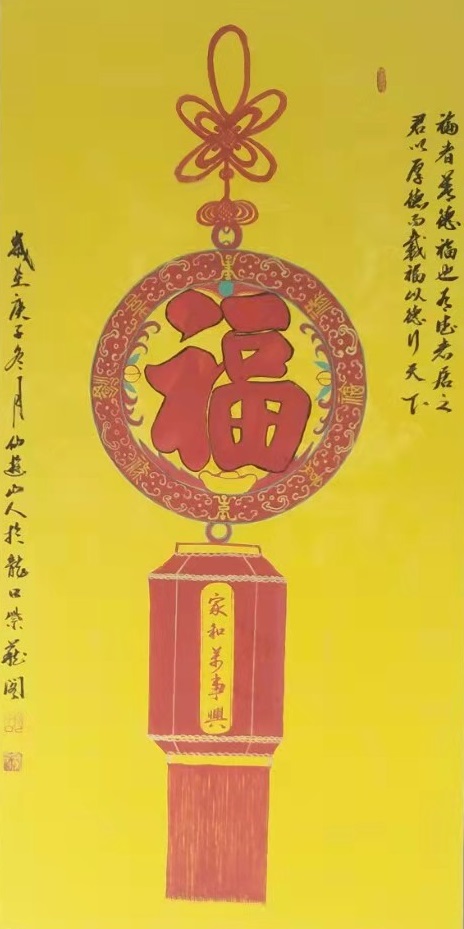 福者善德福也有德者居之
君以厚德而載福以德行天下
福
家和萬事興
歲在庚子冬月仙遊山人於龍口榮藏閣